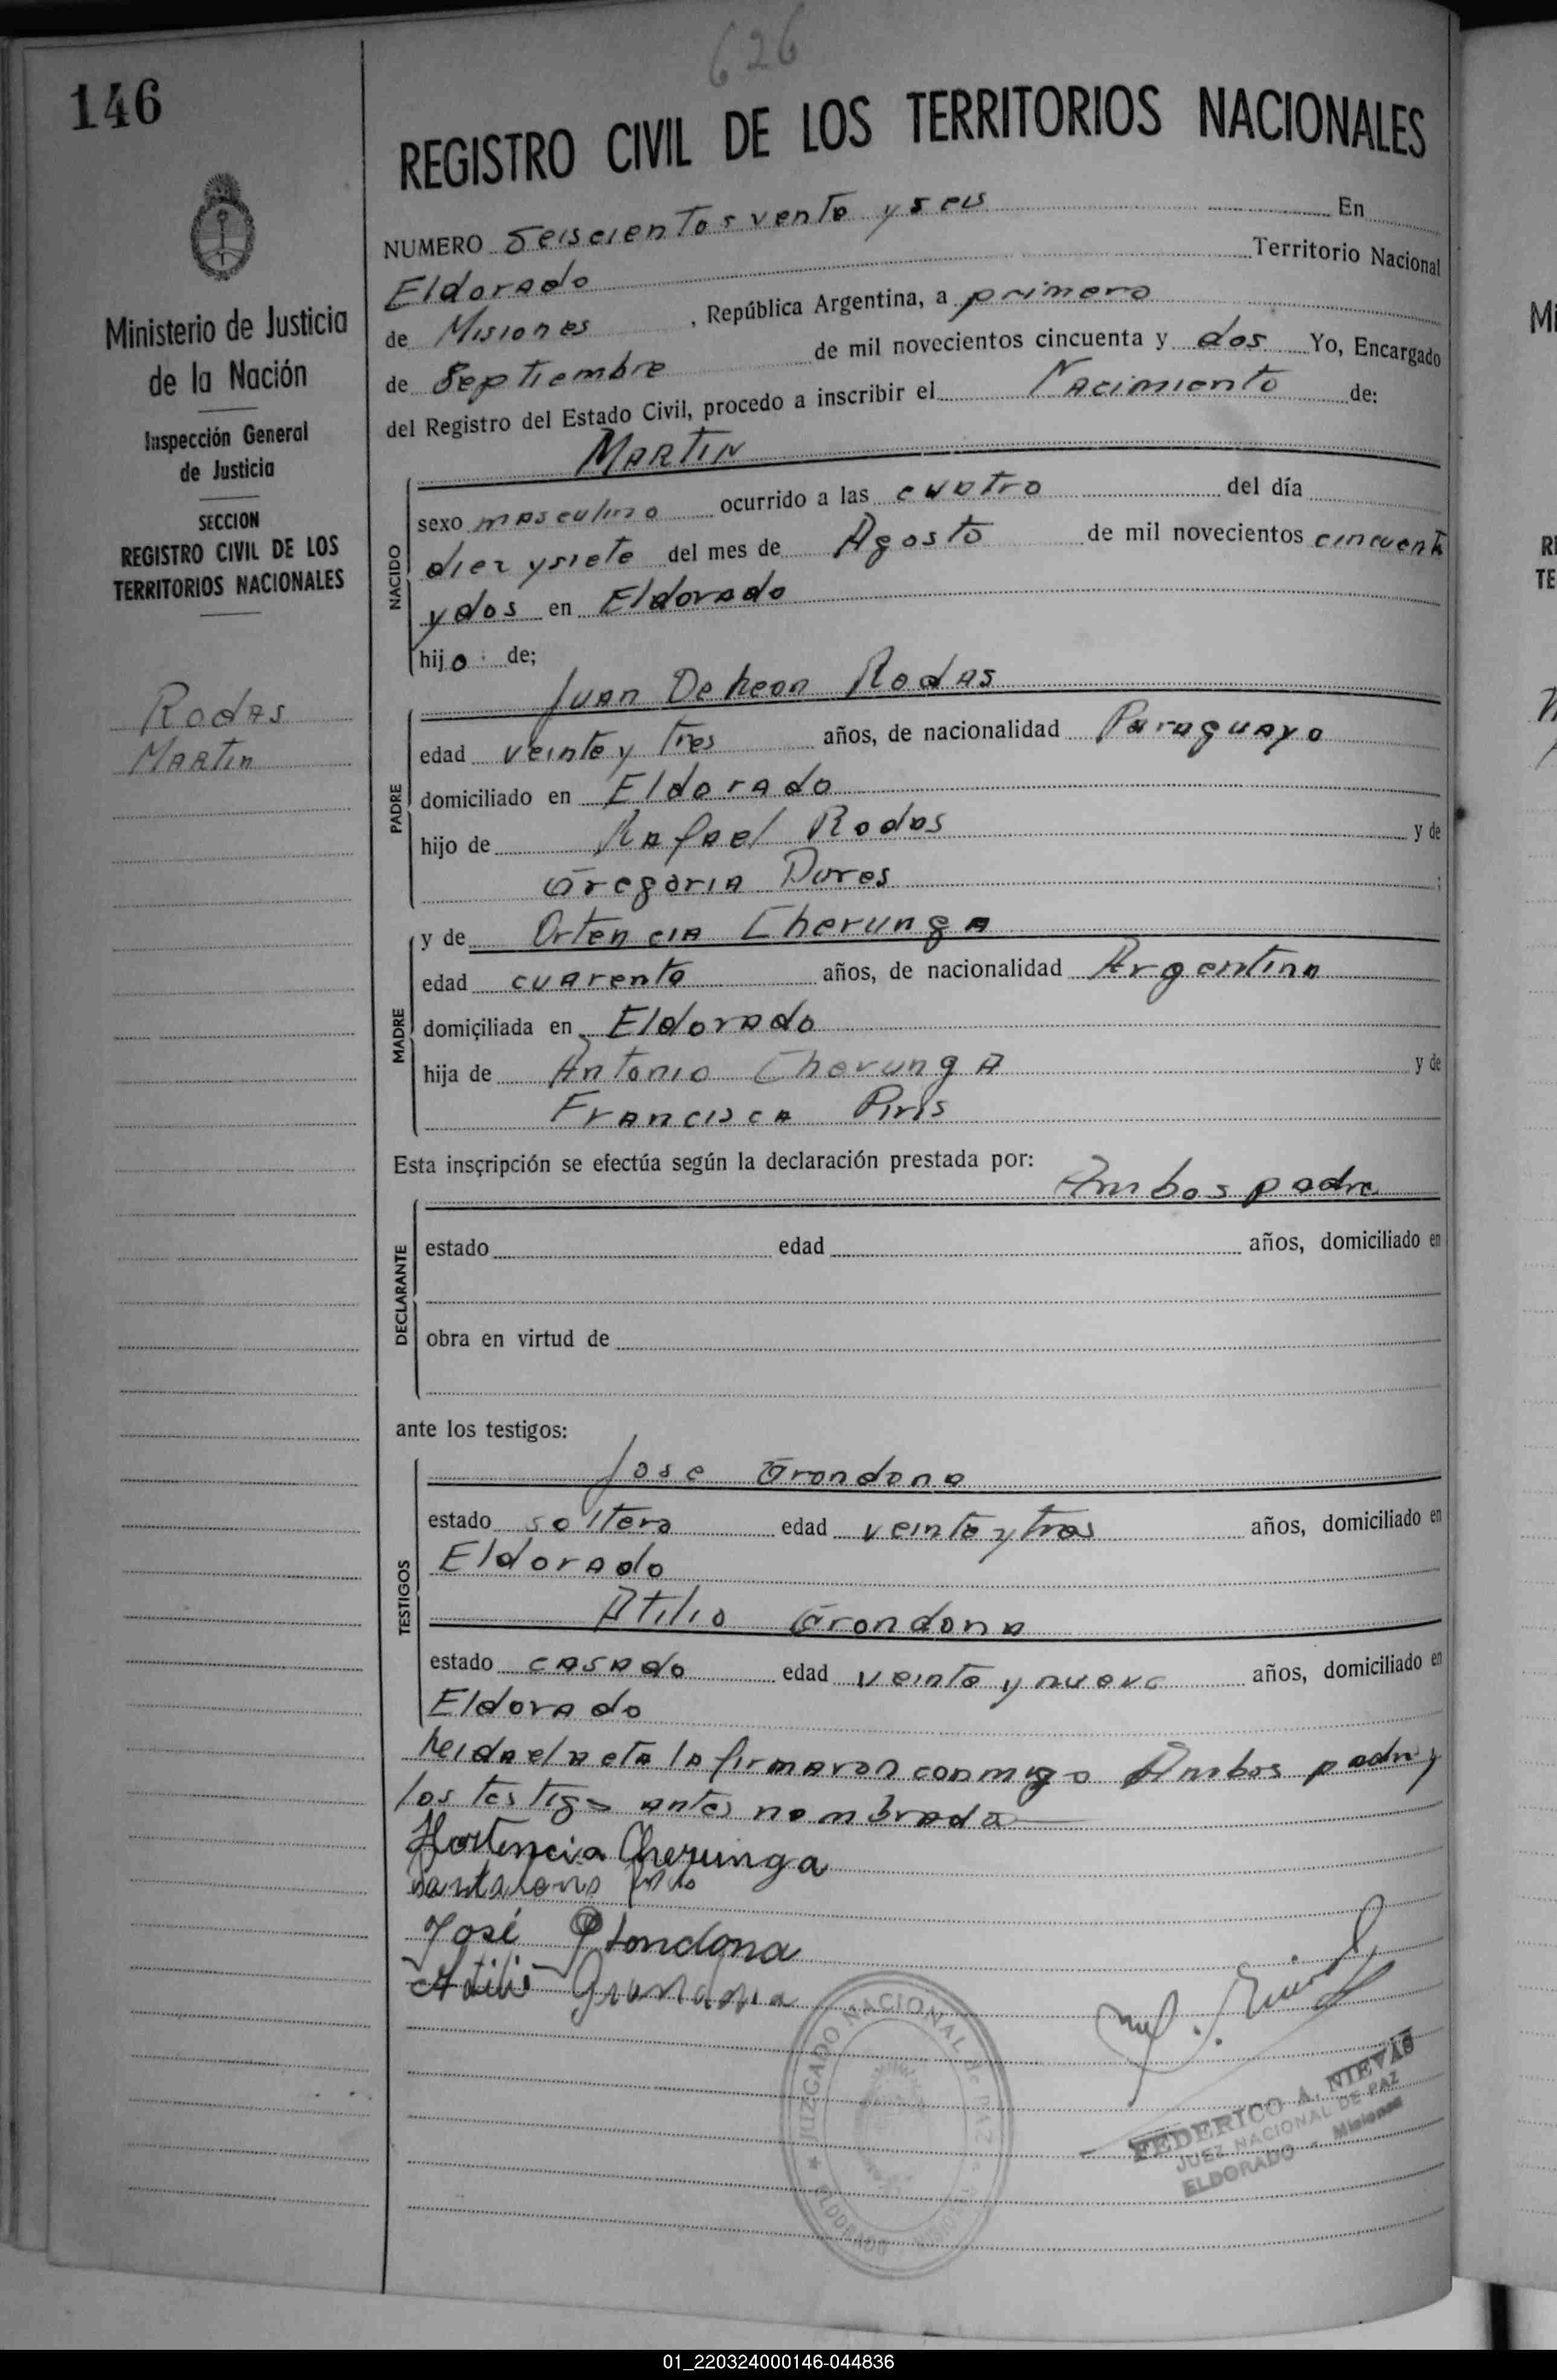 626
146
REGISTRO CIVIL DE LOS TERRITORIOS NACIONALES
NUMERO Seiscientos vente y seis En
Eldorado Territorio Nacional
de Misiones , República Argentina, a primero
de Septiembre de mil novecientos cincuenta y dos Yo, Encargado
del Registro del Estado Civil, procedo a inscribir el Nacimiento de:
Ministerio de Justicia
de la Nación
Inspección General
de Justicia
SECCION
REGISTRO CIVIL DE LOS
TERRITORIOS NACIONALES
Rodas
Martin
NACIDO
MARTIN
sexo masculino ocurrido a las cuatro del día
diez y siete del mes de Agosto de mil novecientos cincuenta
y dos en Eldorado
hijo de;
PADRE
Juan Rodas
edad veinte y tres años, de nacionalidad Paraguayo
domiciliado en Eldorado
hijo de Rafael Rodas y de
Gregoria ;
MADRE
y de Ortencia Cherunga
edad cuarenta años, de nacionalidad Argentina
domiciliada en Eldorado
hija de Antonio Cherunga y de
Francisca Piris
Esta inscripción se efectúa según la declaración prestada por:
Ambos padre
DECLARANTE
estado edad años, domiciliado en
obra en virtud de
ante los testigos:
TESTIGOS
Jose Grondona
estado soltero edad veinte y tres años, domiciliado en
Eldorado
Atilio Grondona
estado casado edad veinte y nueve años, domiciliado en
Eldorado
Leida el acta la firmaron conmigo Ambos padre y
los testigo antes nombrada
Hortencia Cherunga
José Grondona
Atilio Grondona
JUZGADO NACIONAL de PAZ
ELDORADO MISIONES
FEDERICO A. NIEVAS
JUEZ NACIONAL DE PAZ
ELDORADO - Misiones
Mi
RE
TE
01_220324000146-044836